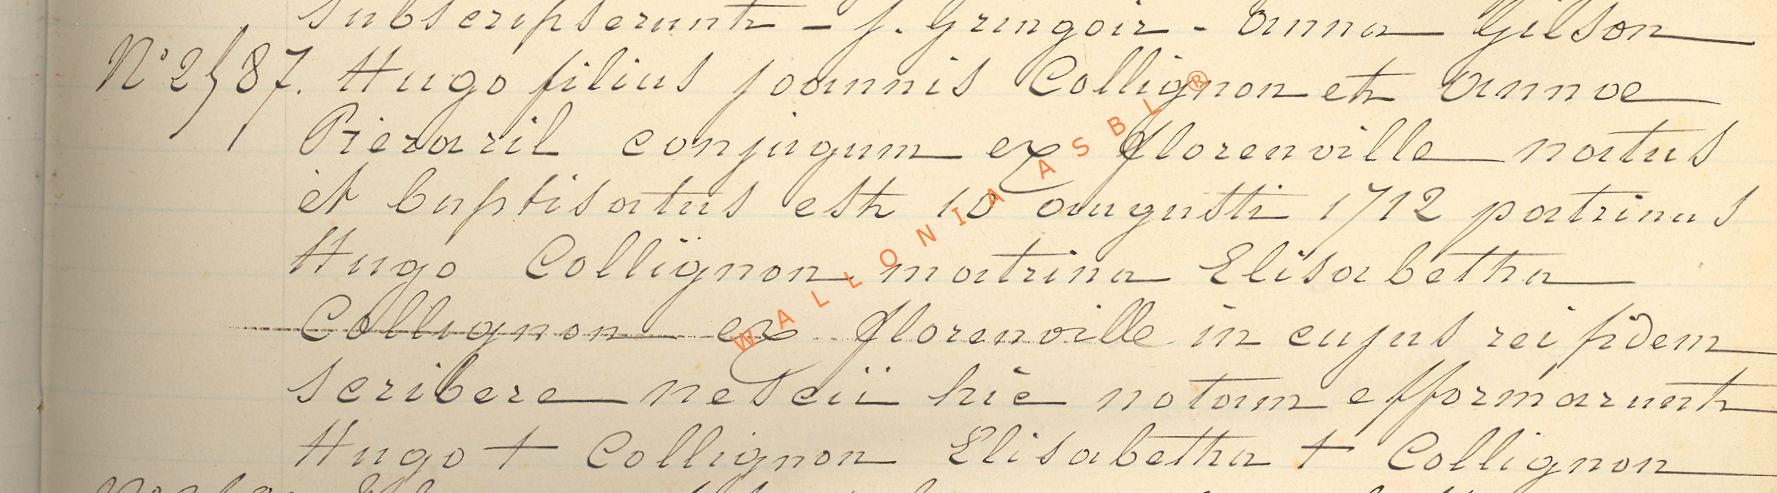 subscripserunt - J. Gringoir - Anna Gilson
N° 2/87. Hugo filius Joannis Collignon et Annae
Pierard conjugum ex Florenville natus
et baptisatus est 10 augusti 1712 patrinus
Hugo Collignon matrina Elisabetha
Collignon ex Florenville in cujus rei fidem
scribere nescii hic notam efformarunt
Hugo + Collignon Elisabetha + Collignon
WALLONIA ASBL ®